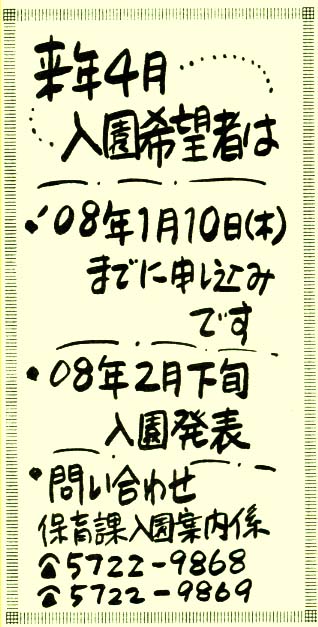 来年4月
入園希望者は
・'08年1月10日(木)
までに申し込み
です
・08年2月下旬
入園発表
・問い合わせ
保育課入園案内係
☎5722-9868
☎5722-9869